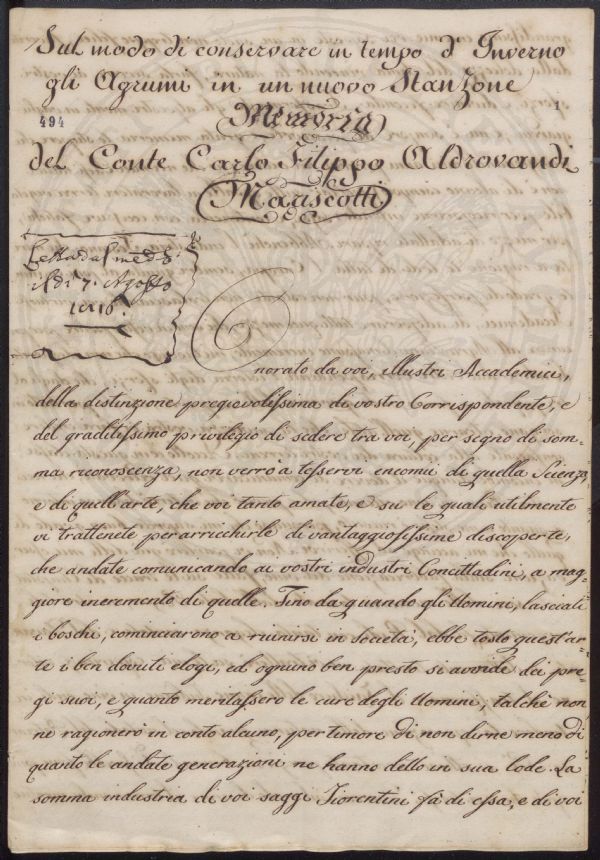 Sul modo di conservare in tempo d'Inverno
gli Agrumi in un nuovo Stanzone
1
494
Memoria
del Conte Carlo Filippo Aldrovandi
Mariscotti
Letta dal med.º
il dì 7. Agosto
1816.
Onorato da voi, illustri Accademici,
della distinzione pregievolissima di vostro Corrispondente, e
del graditissimo privilegio di sedere tra voi, per segno di som=
ma riconoscenza, non verrò a tesservi encomii di quella Scienza,
e di quell'arte, che voi tanto amate, e su le quali utilmente
vi trattenete per arricchirle di vantaggiosissime discoperte,
che andate comunicando ai vostri industri Concittadini, a mag=
giore incremento di quelle. Fino da quando gli Uomini, lasciati
i boschi, cominciarono a riunirsi in Società, ebbe tosto quest'ar=
te i ben dovuti elogi, ed ognuno ben presto si avvide dei pre=
gi suoi, e quanto meritassero le cure degli Uomini, talchè non
ne ragionerò in conto alcuno, per timore di non dirne meno di
quanto le andate generazioni ne hanno detto in sua lode. La
somma industria di voi saggi Fiorentini fà di essa, e di voi